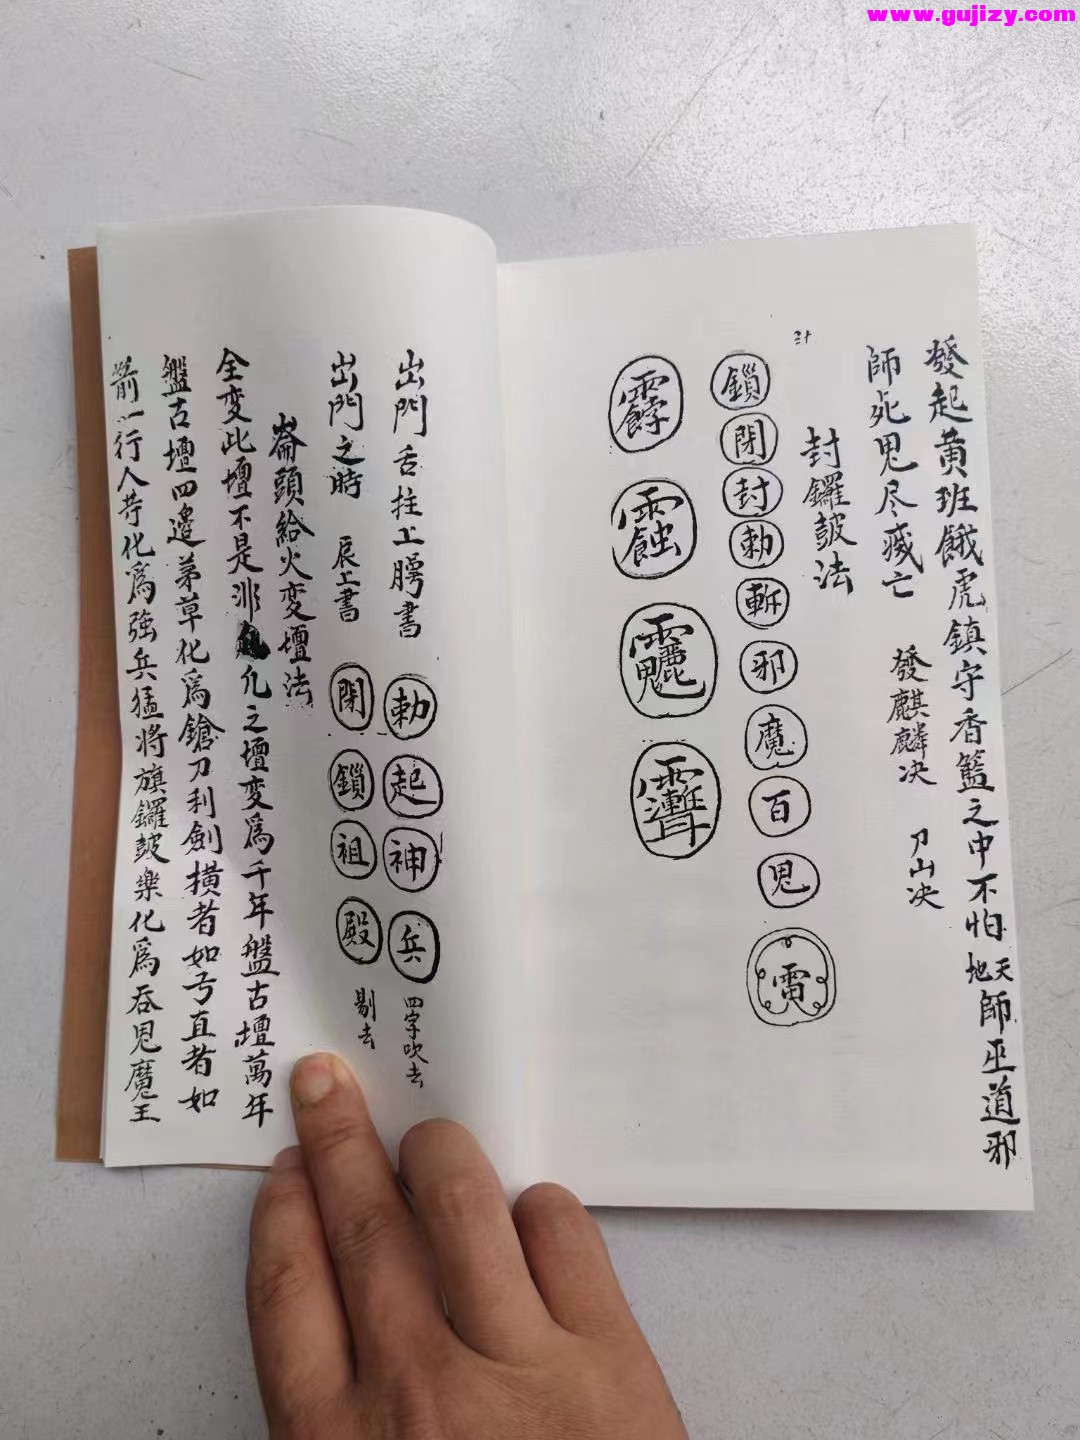 www.gujizy.com
發起黄班餓虎鎮守香籃之中不怕天地師巫道邪
師死鬼尽滅亡 發麒麟决 刀山决
封鑼皷法
鎖閉封勅斬邪魔百鬼雷
出門舌拄上腭書 勅起神兵 四字吹去
出門之時 唇上書 閉鎖祖殿 剔去
崙頭給火变壇法
全变此壇不是非凡之壇变爲千年盤古壇萬年
盤古壇四邉茅草化爲鎗刀利劍横者如弓直者如
箭一行人等化爲強兵猛将旗鑼皷樂化爲吞鬼魔王